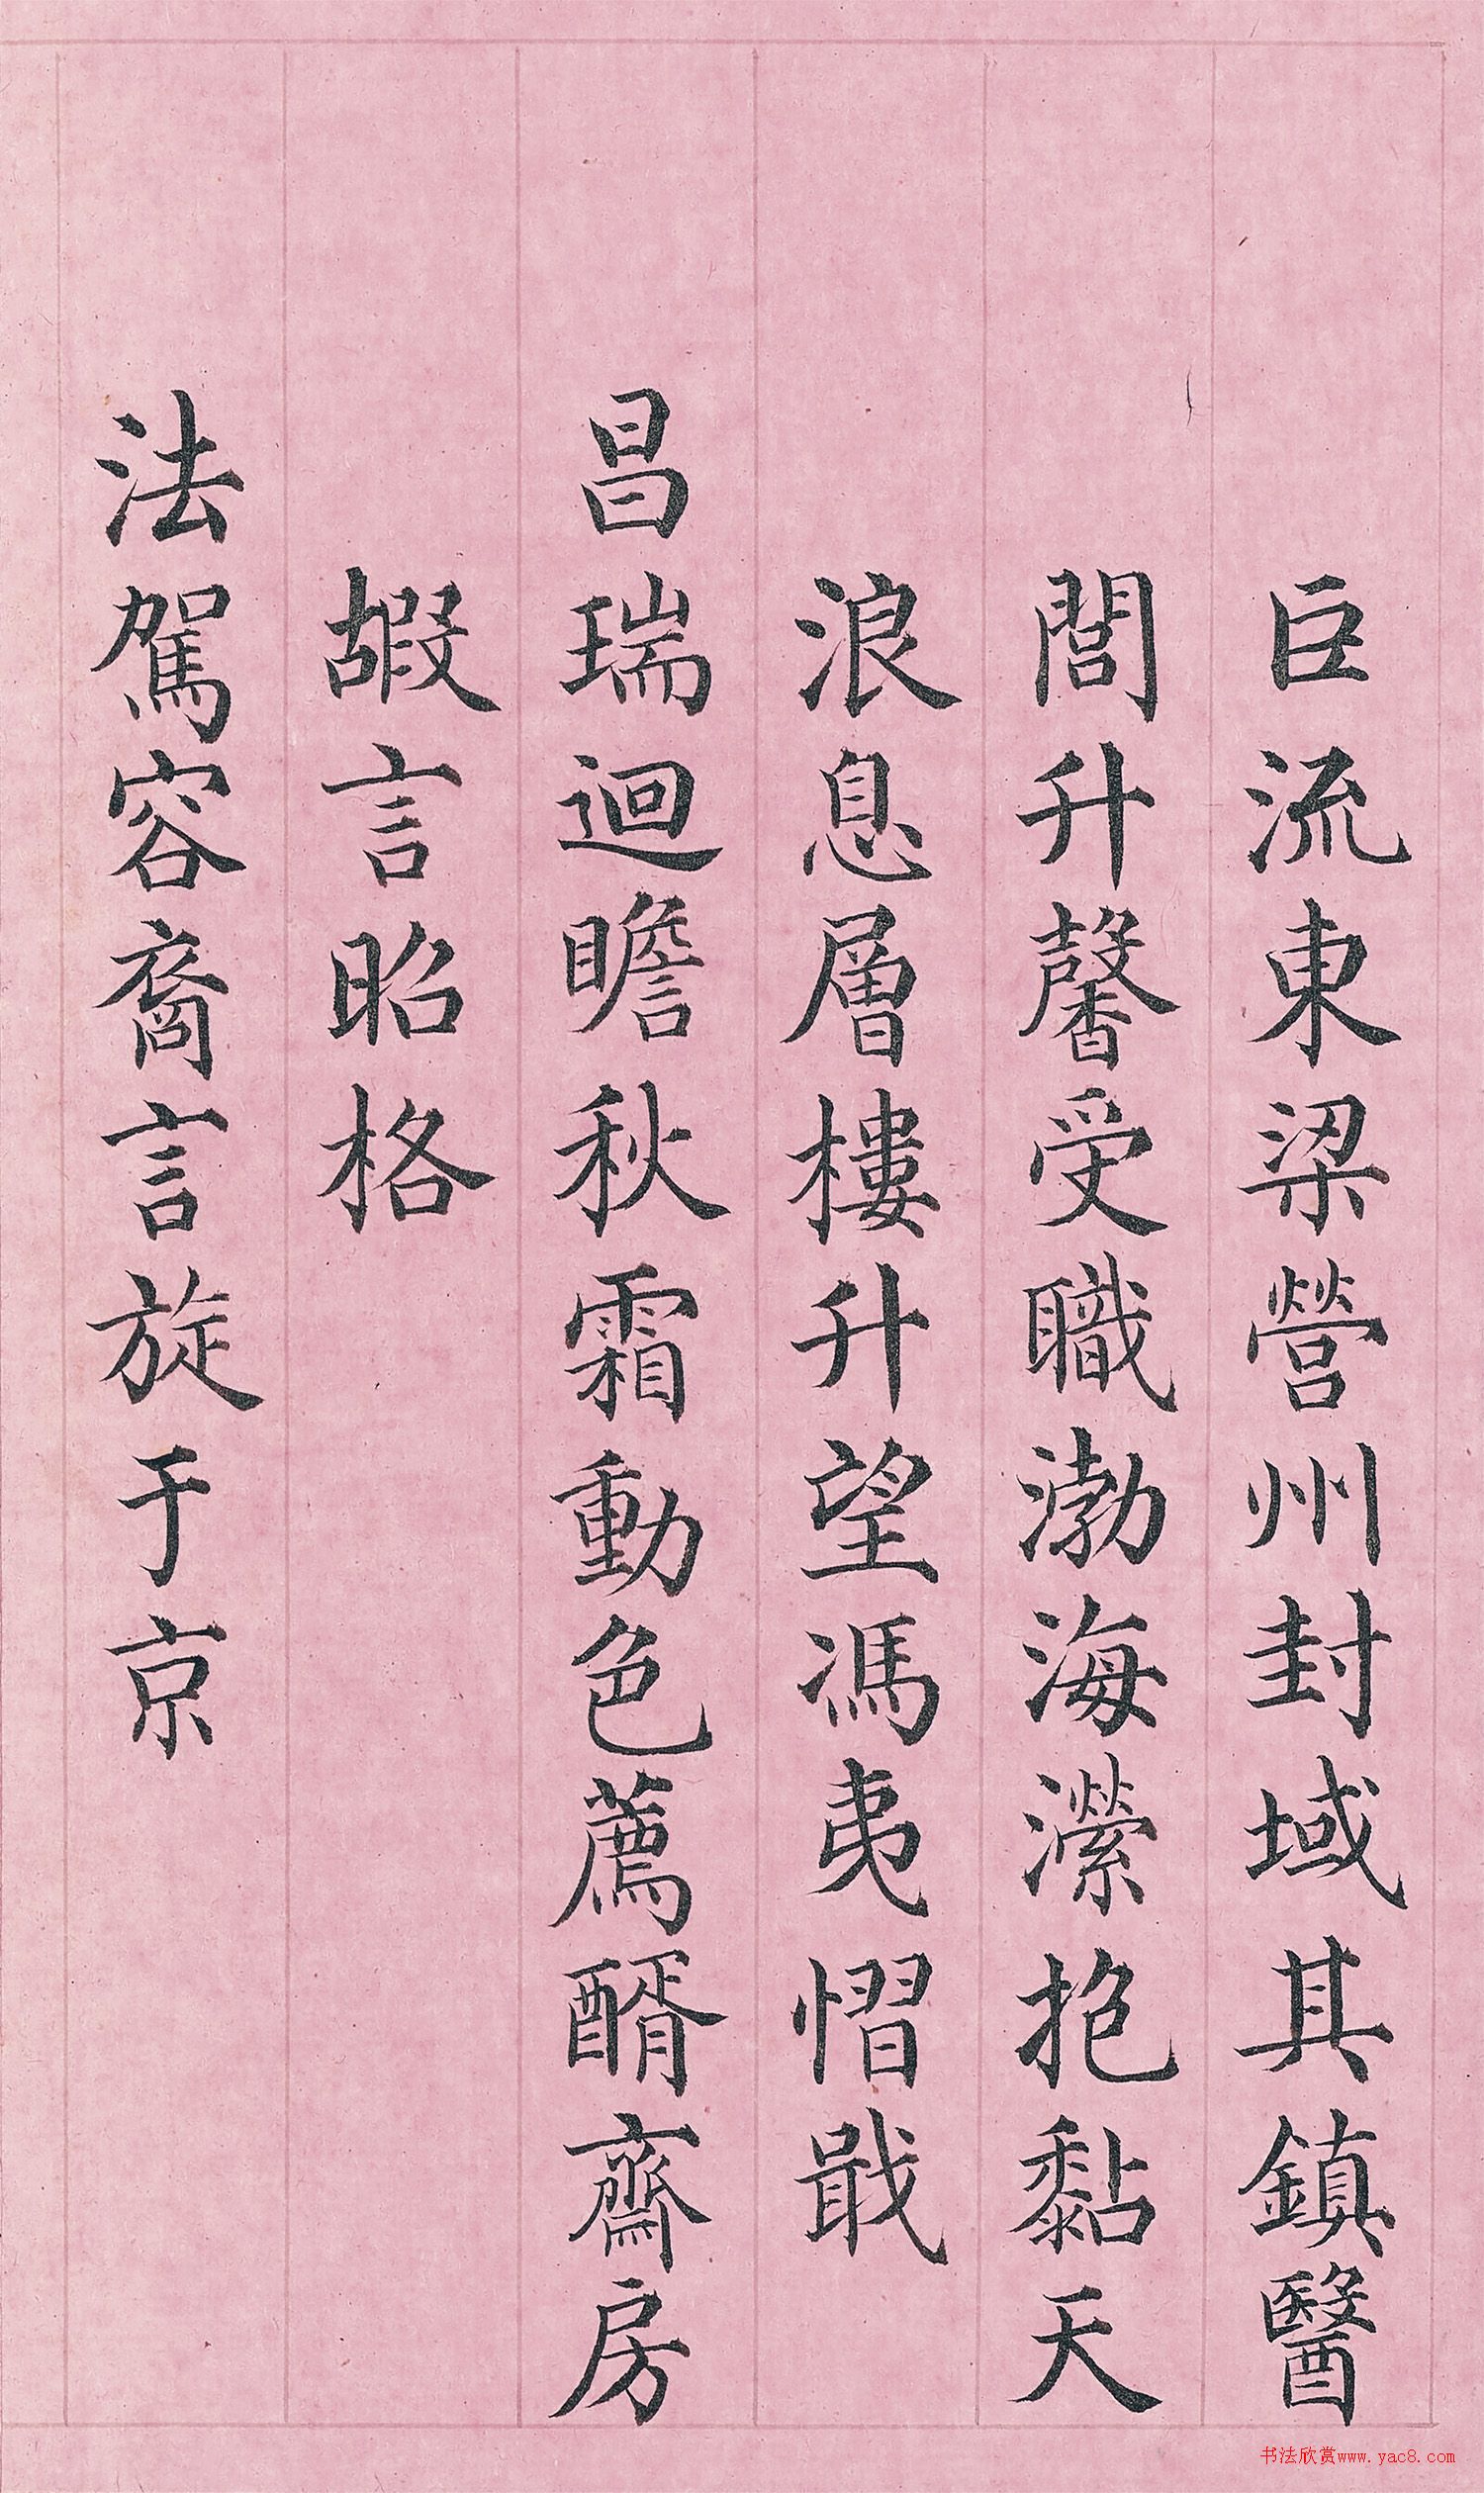 巨流東梁營州封域其鎮醫
閭升馨受職渤海瀠抱黏天
浪息層樓升望馮夷慴戢
昌瑞迴瞻秋霜動色薦醑齋房
嘏言昭格
法駕容裔言旋于京
书法欣赏www.yac8.com